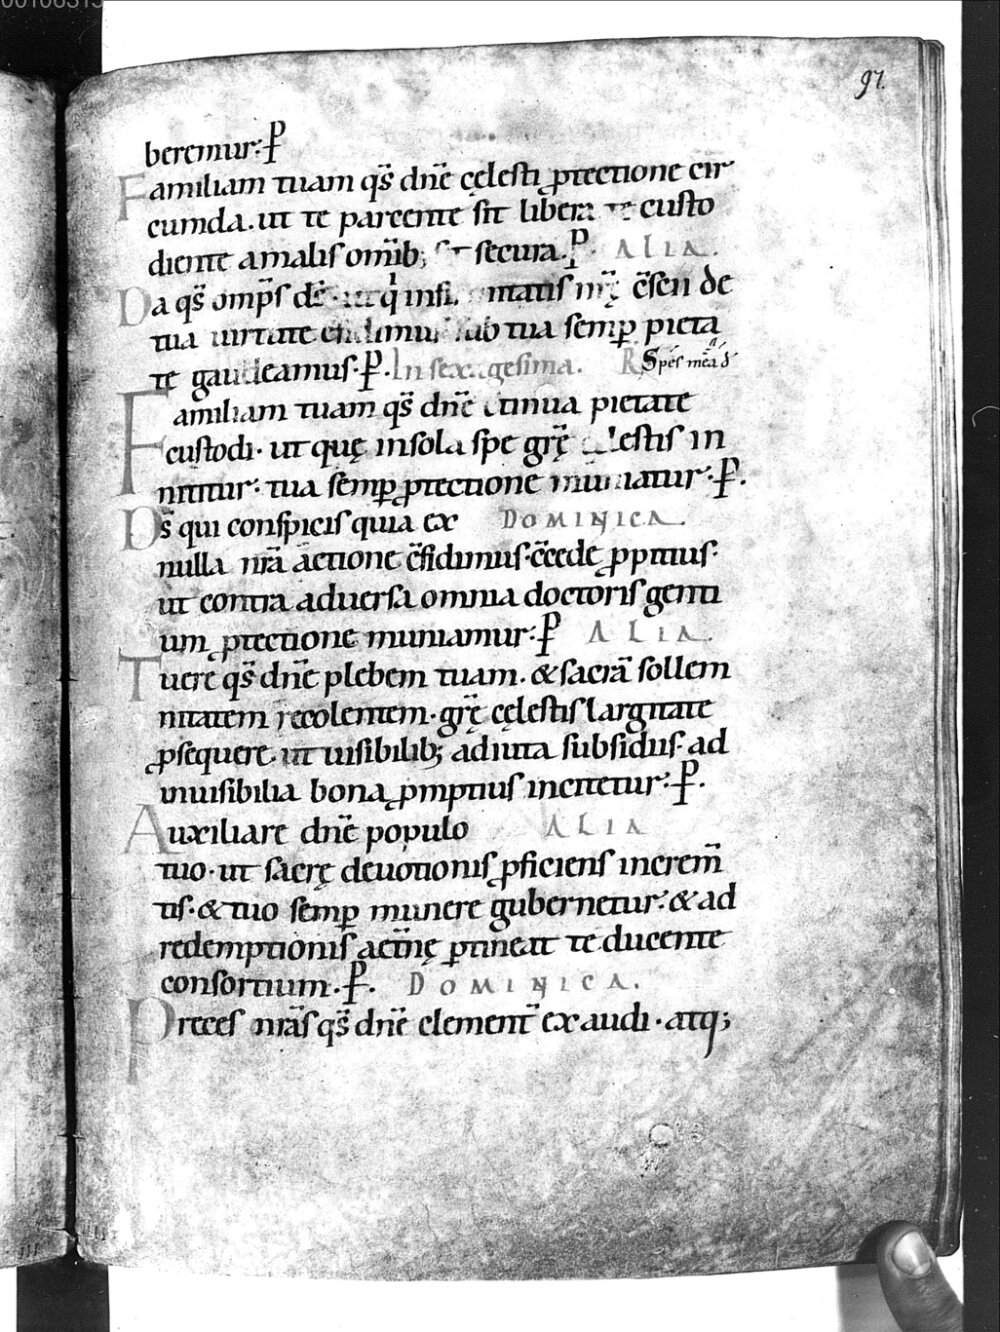 00106315
97.
beremur: P
Familiam tuam qs̄ dn̄e cęlesti ꝓtectione cir
cumda. ut te parcente sit libera te custo
diente a malis omīb; secura. P. ALIA.
Da qs̄ omp̄s ds̄ ut qui infi matis nr̄ę c̄scii de
tua uirtute c̄fidimus sub tua semꝑ pieta
te gaudeamus. P. In sexagesima. R Spes mēa d
Familiam tuam qs̄ dn̄e c̄tinua pietate
custodi. ut quę in sola spe gr̄ę cęlestis in
nititur: tua semꝑ ꝓtectione muniatur: P.
Ds̄ qui conspicis quia ex DOMINICA.
nulla nr̄a actione c̄fidimus. c̄cede ꝓpitius.
ut contra aduersa omnia doctoris genti
um ꝓtectione muniamur: P ALIA.
Tuere qs̄ dn̄e plebem tuam. & sacrā sollem
nitatem recolentem. gr̄ę cęlestis largitate
ꝓsequere. ut uisibilib; adiuta subsidiis. ad
inuisibilia bona ꝓmptius incitetur: P.
Auxiliare dn̄e populo ALIA
tuo. ut sacrę deuotionis ꝓficiens increm̄
tis. & tuo semꝑ munere gubernetur: & ad
redemptionis aet̄nę ꝑtineat te ducente
consortium. P. DOMINICA.
Preces nr̄as qs̄ dn̄e clement̄ exaudi. atq;